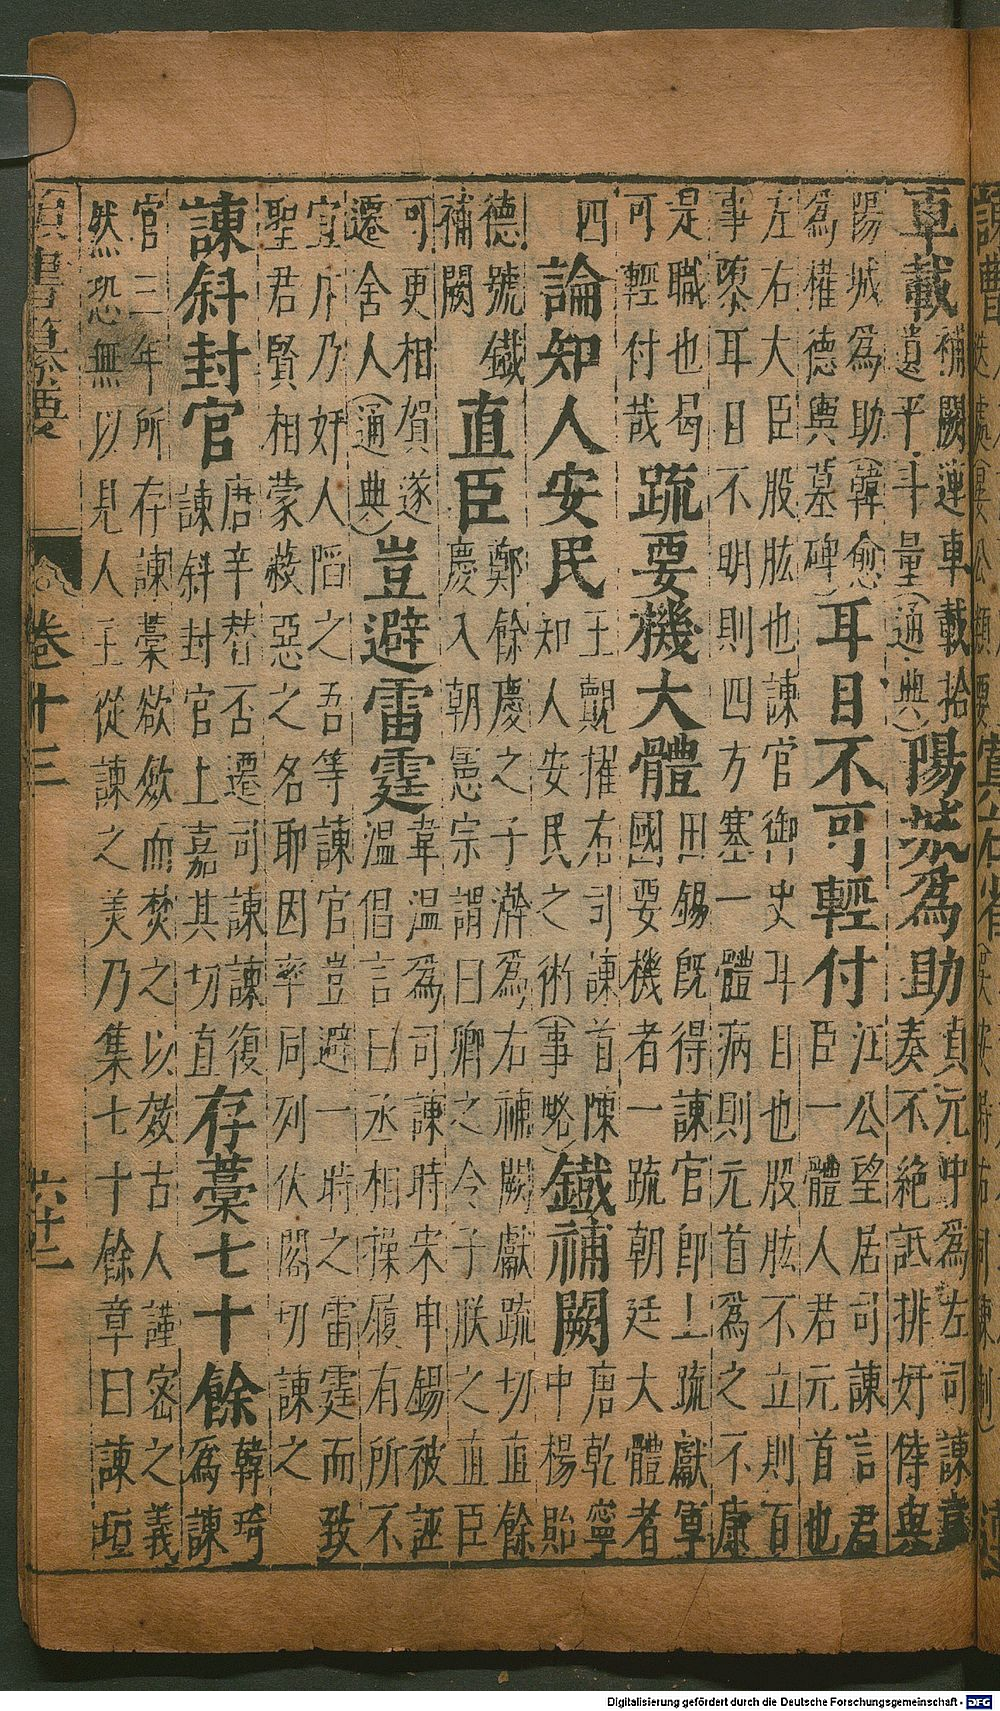 車載
補闕連車載拾
遺平斗量(通典)
陽城爲助
貞元中爲左司諫章
奏不絕詆排奸倖與
陽城爲助(韓愈
爲權德輿墓碑)
耳目不可輕付
江公望居司諫言君
臣一體人君元首也
左右大臣股肱也諫官御史耳目也股肱不立則百
事隳耳目不明則四方塞一體病則元首爲之不康
是職也曷
可輕付哉
疏要機大體
田錫旣得諫官卽上疏獻軍
國要機者一疏朝廷大體者
四
論知人安民
王覿擢右司諫首陳
知人安民之術(事略)
鐵補闕
唐乾寧
中楊貽
德號鐵
補闕
直臣
鄭餘慶之子澣爲右補闕獻疏切直餘
慶入朝憲宗謂曰卿之令子朕之直臣
可更相賀遂
遷舍人(通典)
豈避雷霆
韋溫爲司諫時宋申錫被誣
溫倡言曰丞相操履有所不
宜斥乃奸人陷之吾等諫官豈避一時之雷霆而致
聖君賢相蒙蔽惡之名耶因率同列伏閣切諫之
諫斜封官
唐辛替否遷司諫諫復
諫斜封官上嘉其切直
存藁七十餘
韓琦
爲諫
官三年所存諫藁欲斂而焚之以效古人謹密之義
然恐無以見人主從諫之美乃集七十餘章曰諫垣
卷十三
六十二
Digitalisierung gefördert durch die Deutsche Forschungsgemeinschaft - DFG